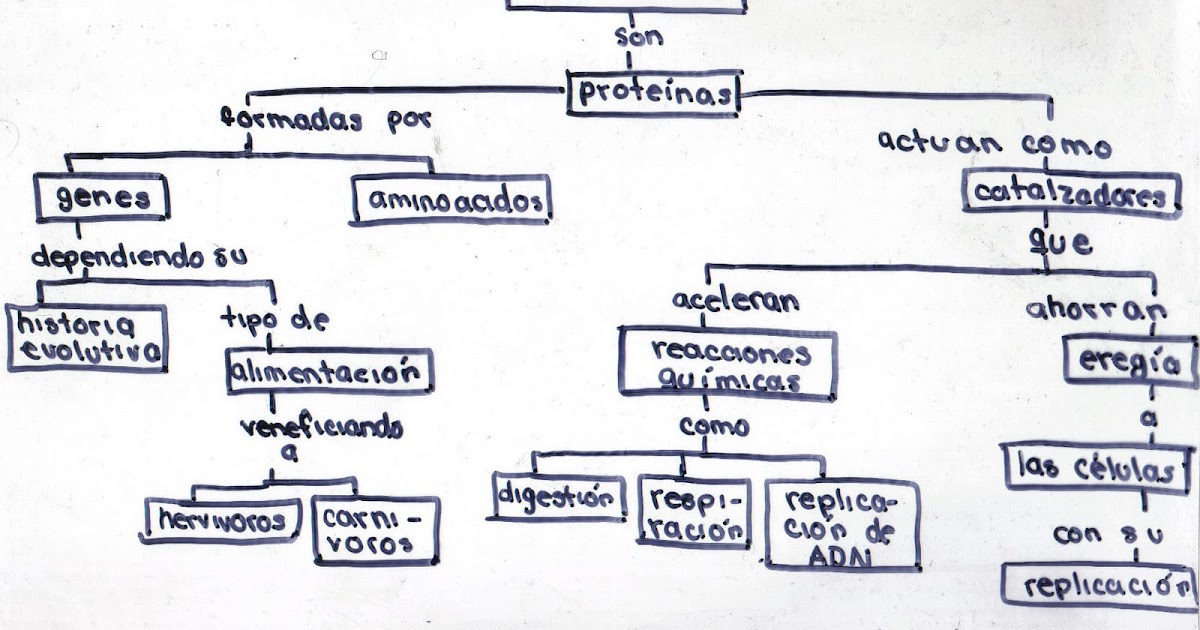 son
proteínas
formadas por
actuan como
genes
aminoacidos
catalzadores
que
dependiendo su
historia
evolutiva
tipo de
alimentación
veneficiando
a
hervivoros
carni-
voros
aceleran
reacciones
químicas
como
digestión
respi-
ración
replica-
ción de
ADN
ahorran
eregía
a
las células
con su
replicación